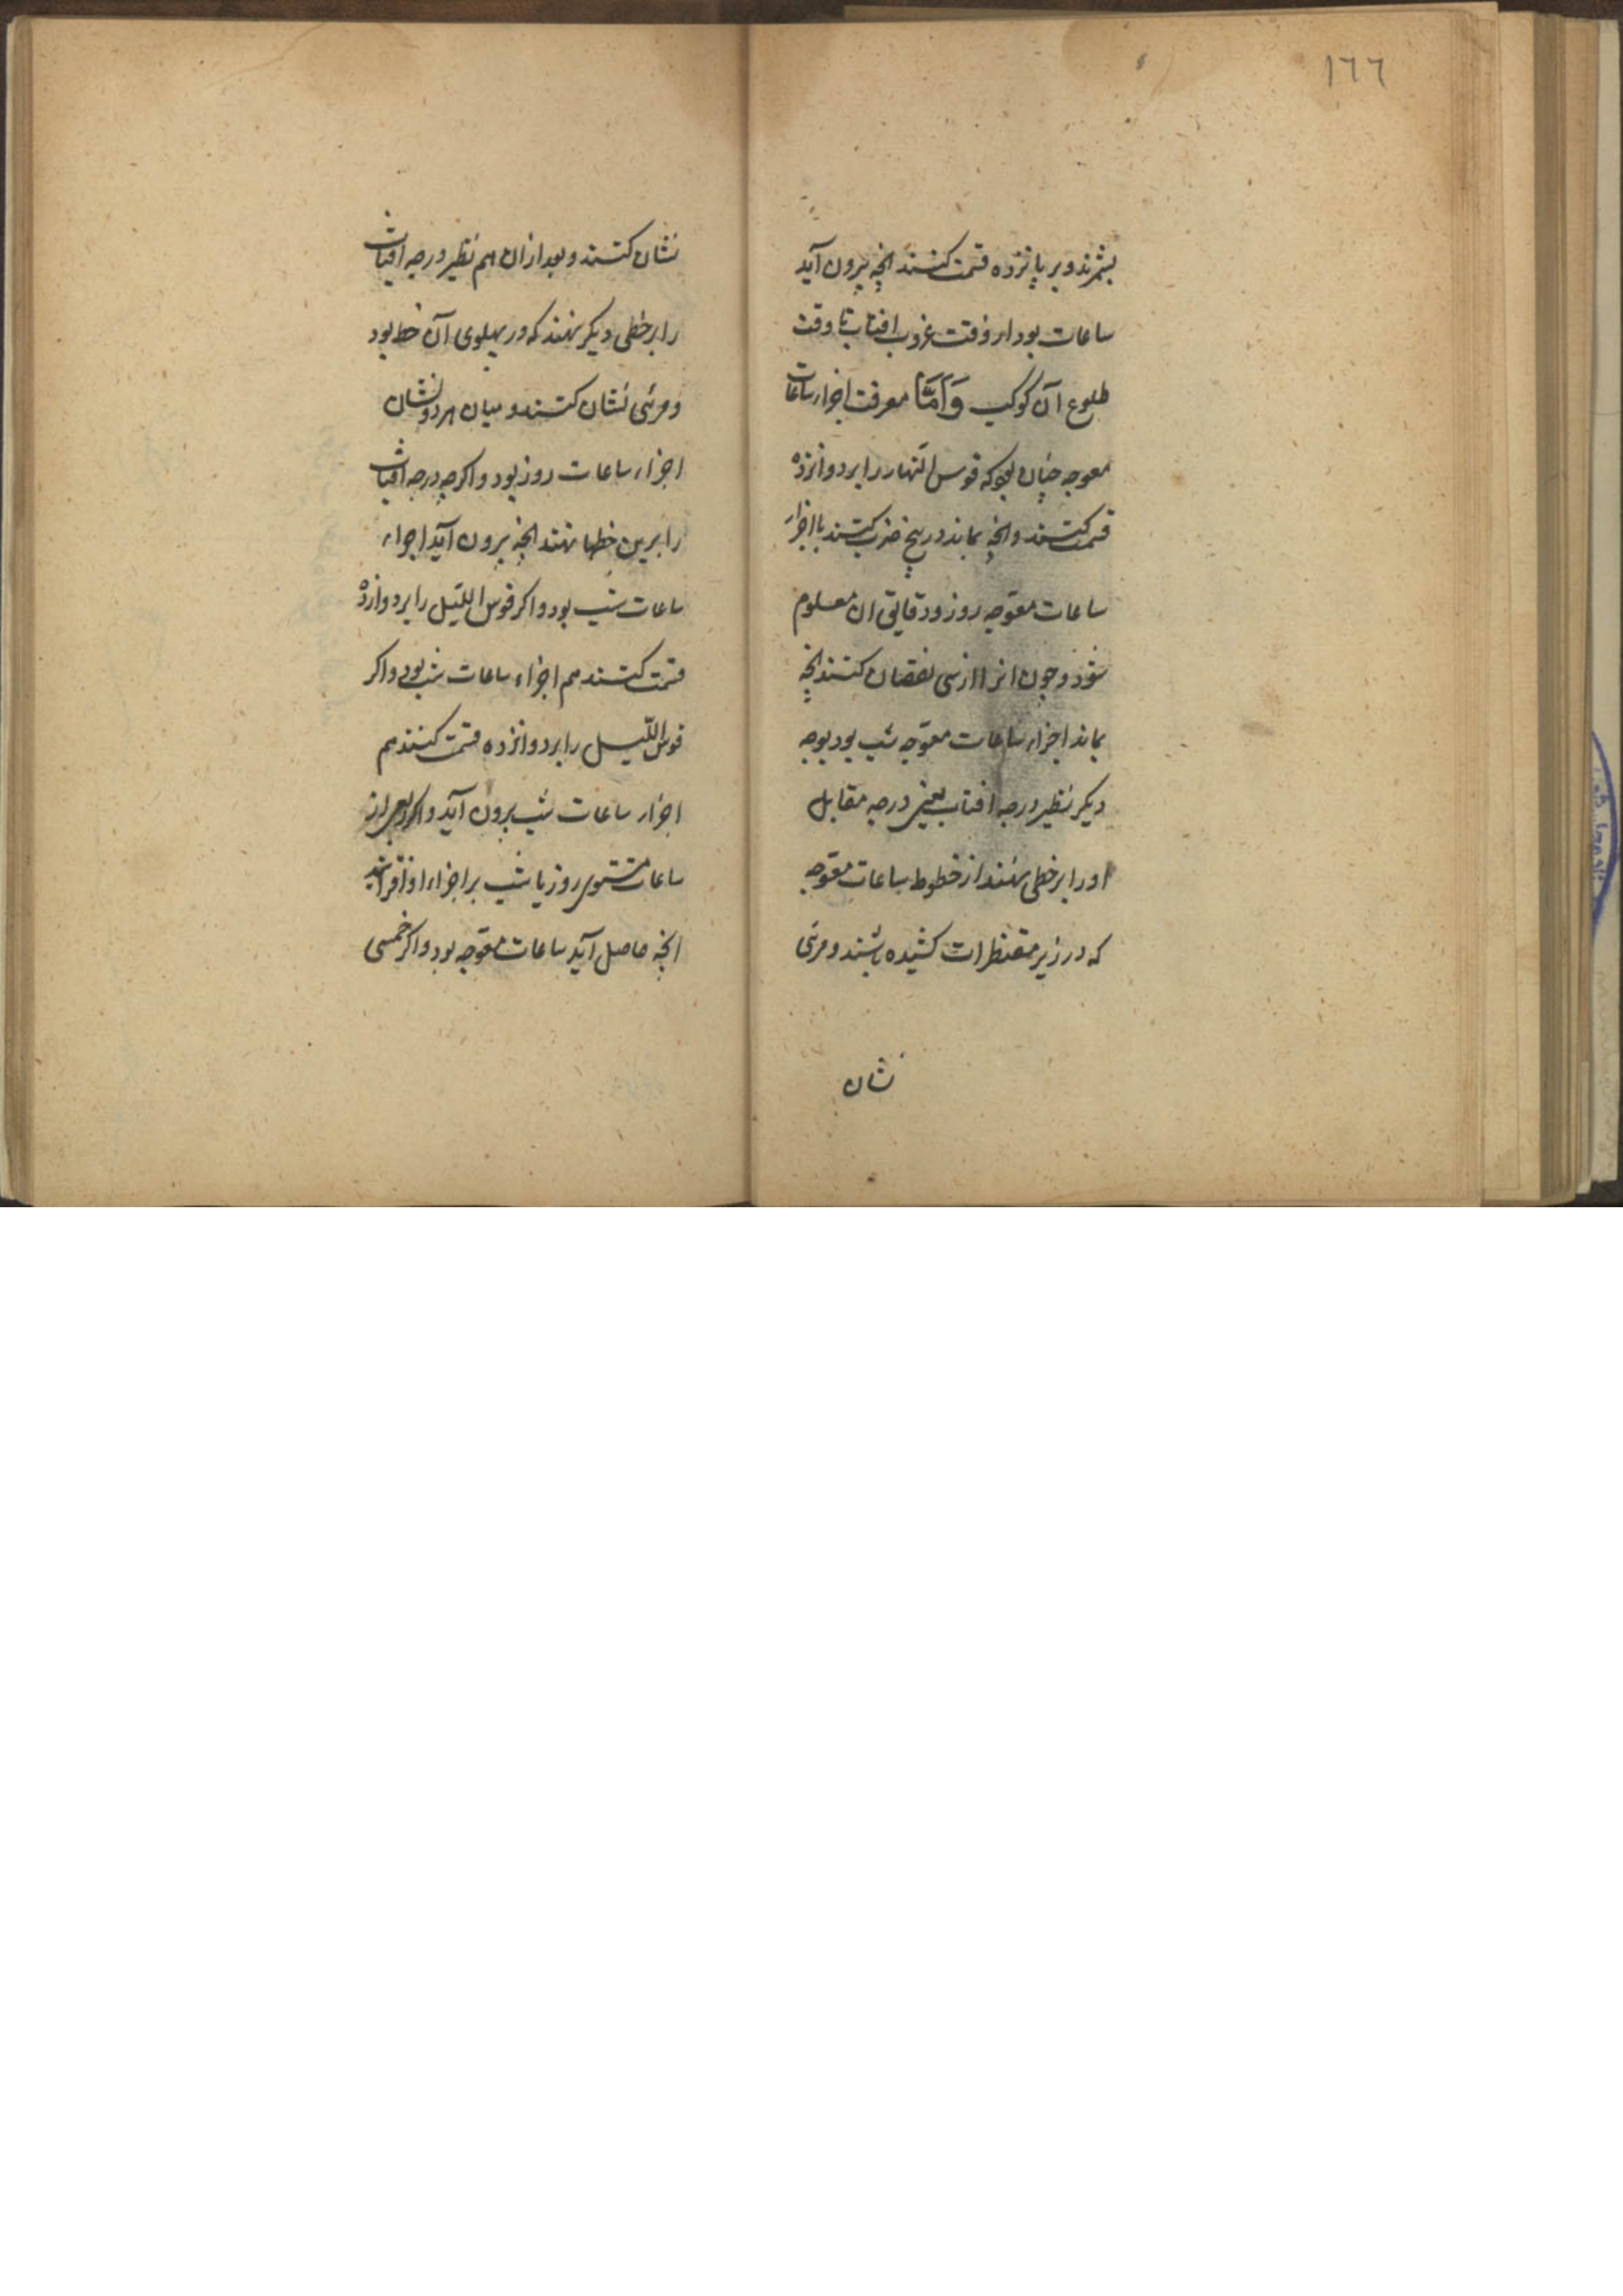 ١٦٦
بشمرند و بر پانزده قسمت کنند انچه بیرون آید
ساعات بود از وقت غروب افتاب تا وقت
طلوع آن کوکب وَاَمَّا معرفت اجزاء ساعات
معوجه چنان بود که قوس النهار را بر دوانزده
قسمت کنند و انچه بماند در پنج ضرب کنند تا اجزاء
ساعات معوّجه روز و دقایق ان معلوم
شود و چون انرا از سی نقصان کنند انچه
بماند اجزاء ساعات معوّجه شب بود بوجه
دیکر نظیر درجه افتاب یعنی درجه مقابل
او را بر خطی نهند از خطوط ساعات معوّجه
که در زیر مقنطرات کشیده باشند و مرئی
نشان
نشان کنند و بعد از ان هم نظیر درجه افتاب
را بر خطی دیکر نهند که در پهلوی آن خط بود
و مرئی نشان کنند و میان هر دو نشان
اجزاء ساعات روز بود و اکر چه درجه افتاب
را برین خطها نهند انچه بیرون آید اجزاء
ساعات شب بود و اکر قوس اللیل را بر دوازده
قسمت کنند هم اجزاء ساعات شب بود و اکر
قوس اللّیل را بر دوانزده قسمت کنند هم
اجزاء ساعات شب برون آید و اکر از
ساعات مستوی روز یا شب بر اجزاء او افزایند
انچه حاصل آید ساعات معوّجه بود و اکر خمسی